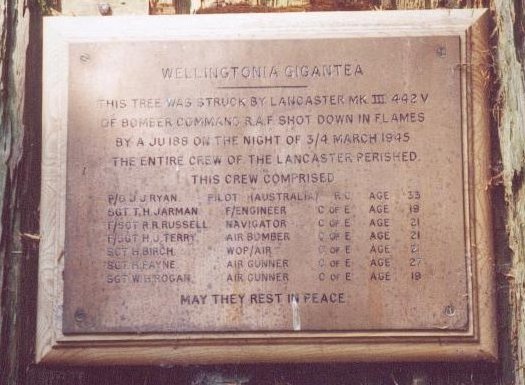 WELLINGTONIA GIGANTEA
THIS TREE WAS STRUCK BY LANCASTER MK III 442 V
OF BOMBER COMMAND R.A.F. SHOT DOWN IN FLAMES
BY A JU 188 ON THE NIGHT OF 3/4 MARCH 1945
THE ENTIRE CREW OF THE LANCASTER PERISHED.
THIS CREW COMPRISED
P/O J.J. RYAN PILOT (AUSTRALIA) R.C. AGE 33
SGT T.H. JARMAN F/ENGINEER C OF E AGE 19
F/SGT R.R. RUSSELL NAVIGATOR C OF E AGE 21
F/SGT H.J. TERRY AIR BOMBER C OF E AGE 21
SGT H. BIRCH WOP/AIR C OF E AGE 21
SGT R. PAYNE AIR GUNNER C OF E AGE 27
SGT W. H. ROGAN AIR GUNNER C OF E AGE 19
MAY THEY REST IN PEACE